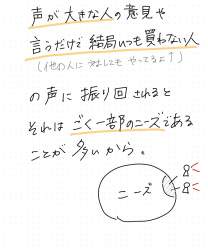 声が大きな人の意見や
言うだけで結局いつも買わない人
の声に振り回されると
それはごく一部のニーズである
ことが多いから。
ニーズ